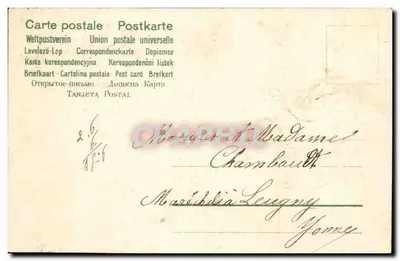 Carte postale Postkarte
Weltpostverein Union postale universelle
Levelező-Lap Correspondenzkarte Dopisnice
Karta korespondencyjna Korespondenční lístek
Briefkaart Cartolina postale Post card Brefkort
Открытое письмо Дописна Карта
Tarjeta Postal
Monsieur & Madame
Chambault
Leugny
Yonne